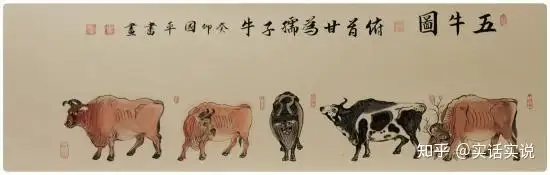 五牛圖
俯首甘為孺子牛 癸卯国平書畫
知乎 @实话实说